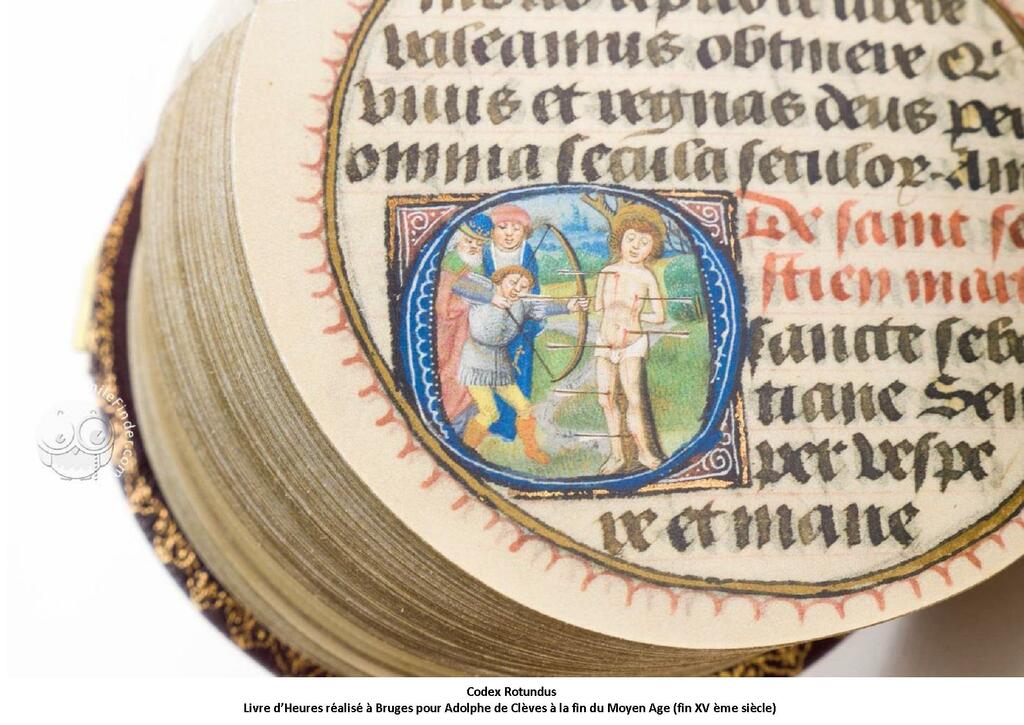 valeamus obtinere Q'
viuis et regnas deus per
omnia secula seculor. Am
De saint se
stien mart
O sancte seba
tiane Sem
per vespe
re et mane
ileFinder.com
Codex Rotundus
Livre d’Heures réalisé à Bruges pour Adolphe de Clèves à la fin du Moyen Age (fin XV ème siècle)